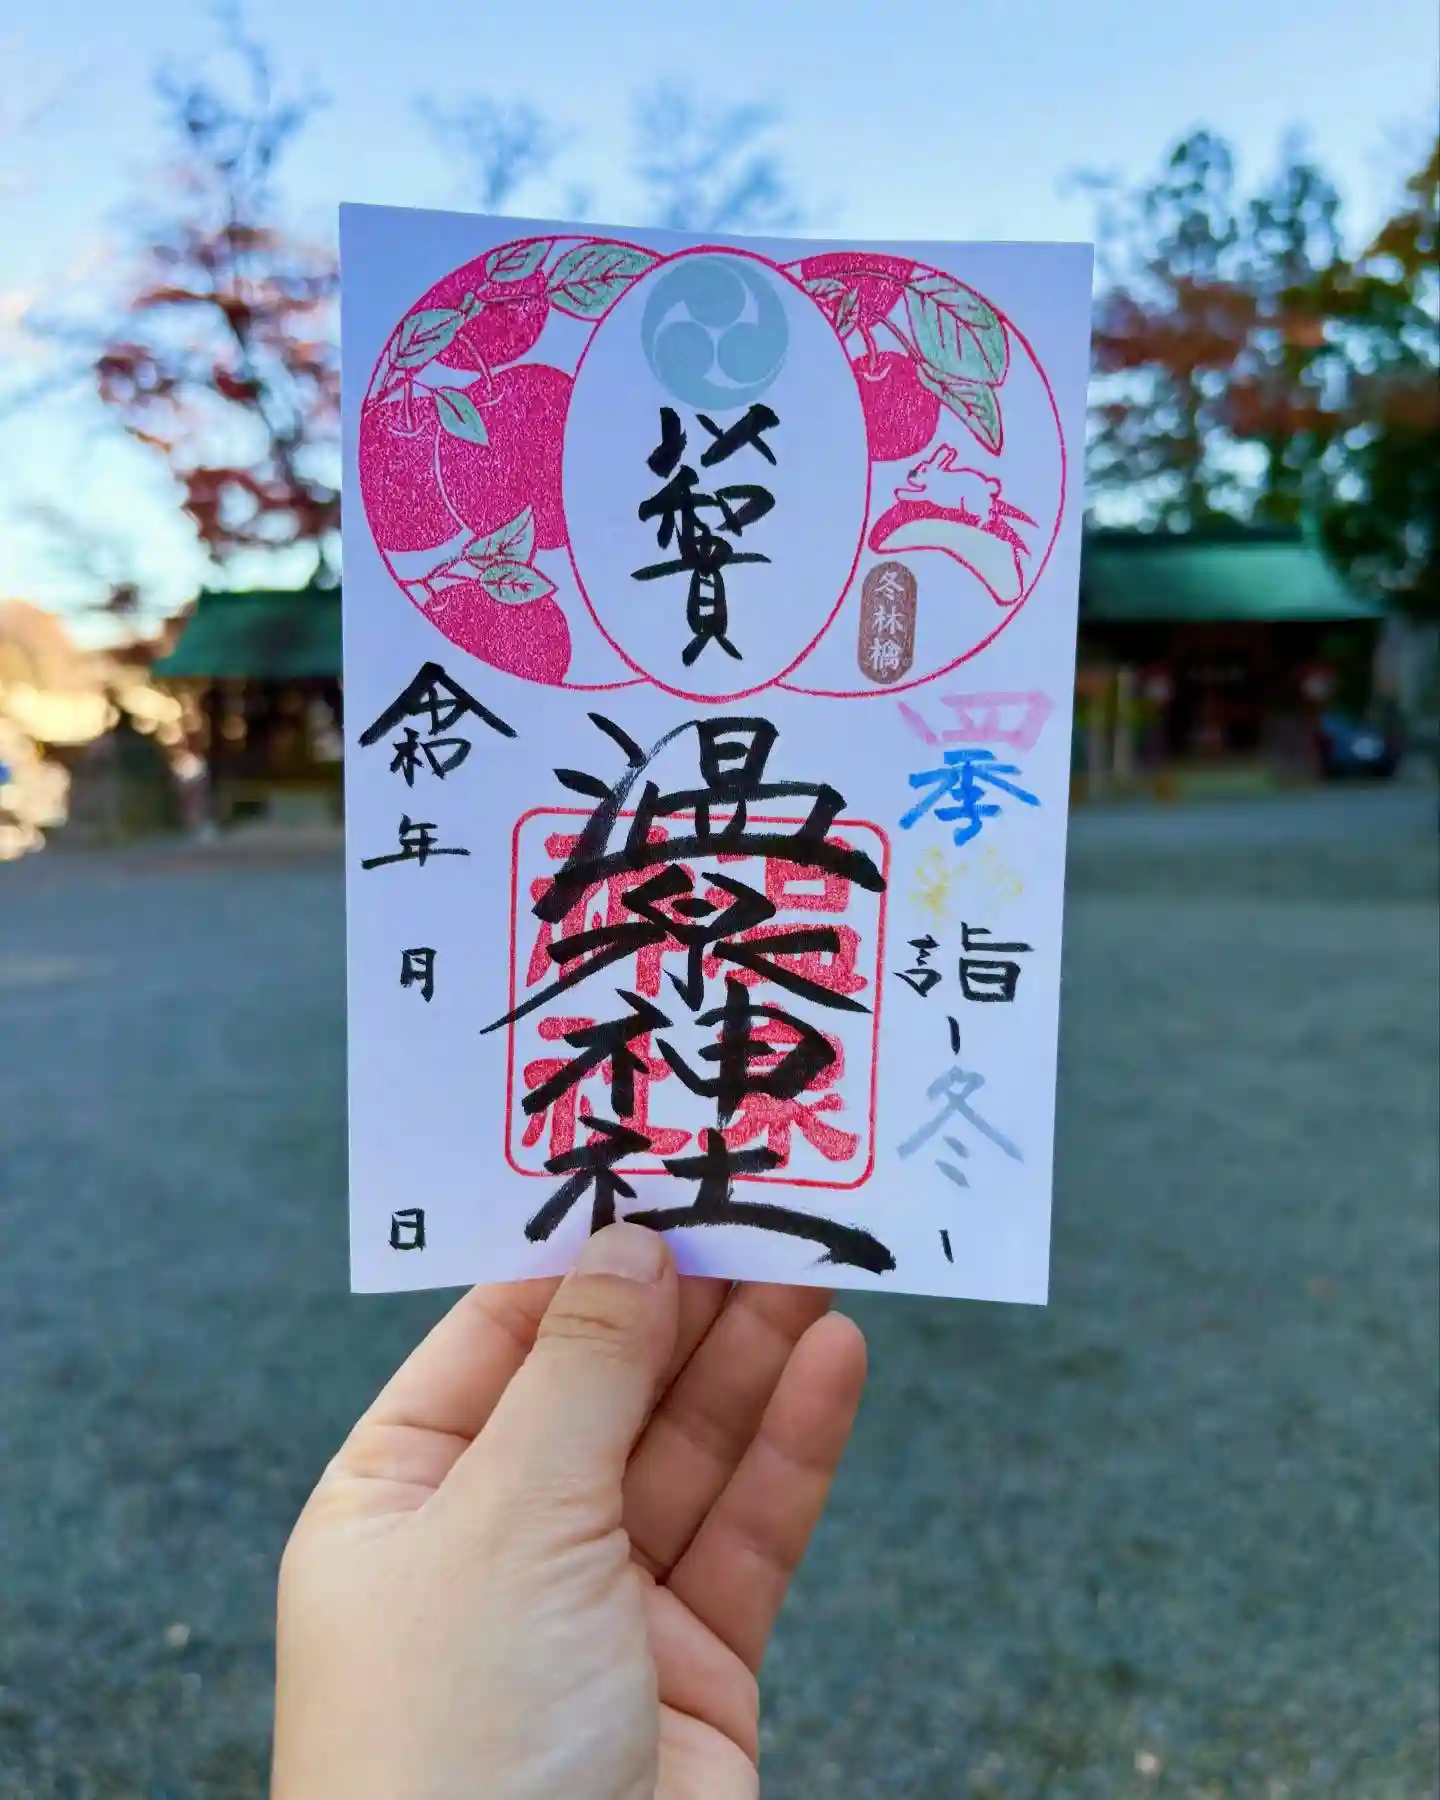 冬林檎
四季彩詣 ー冬ー
以和貴
温泉神社
温泉
神社
令和 年 月 日